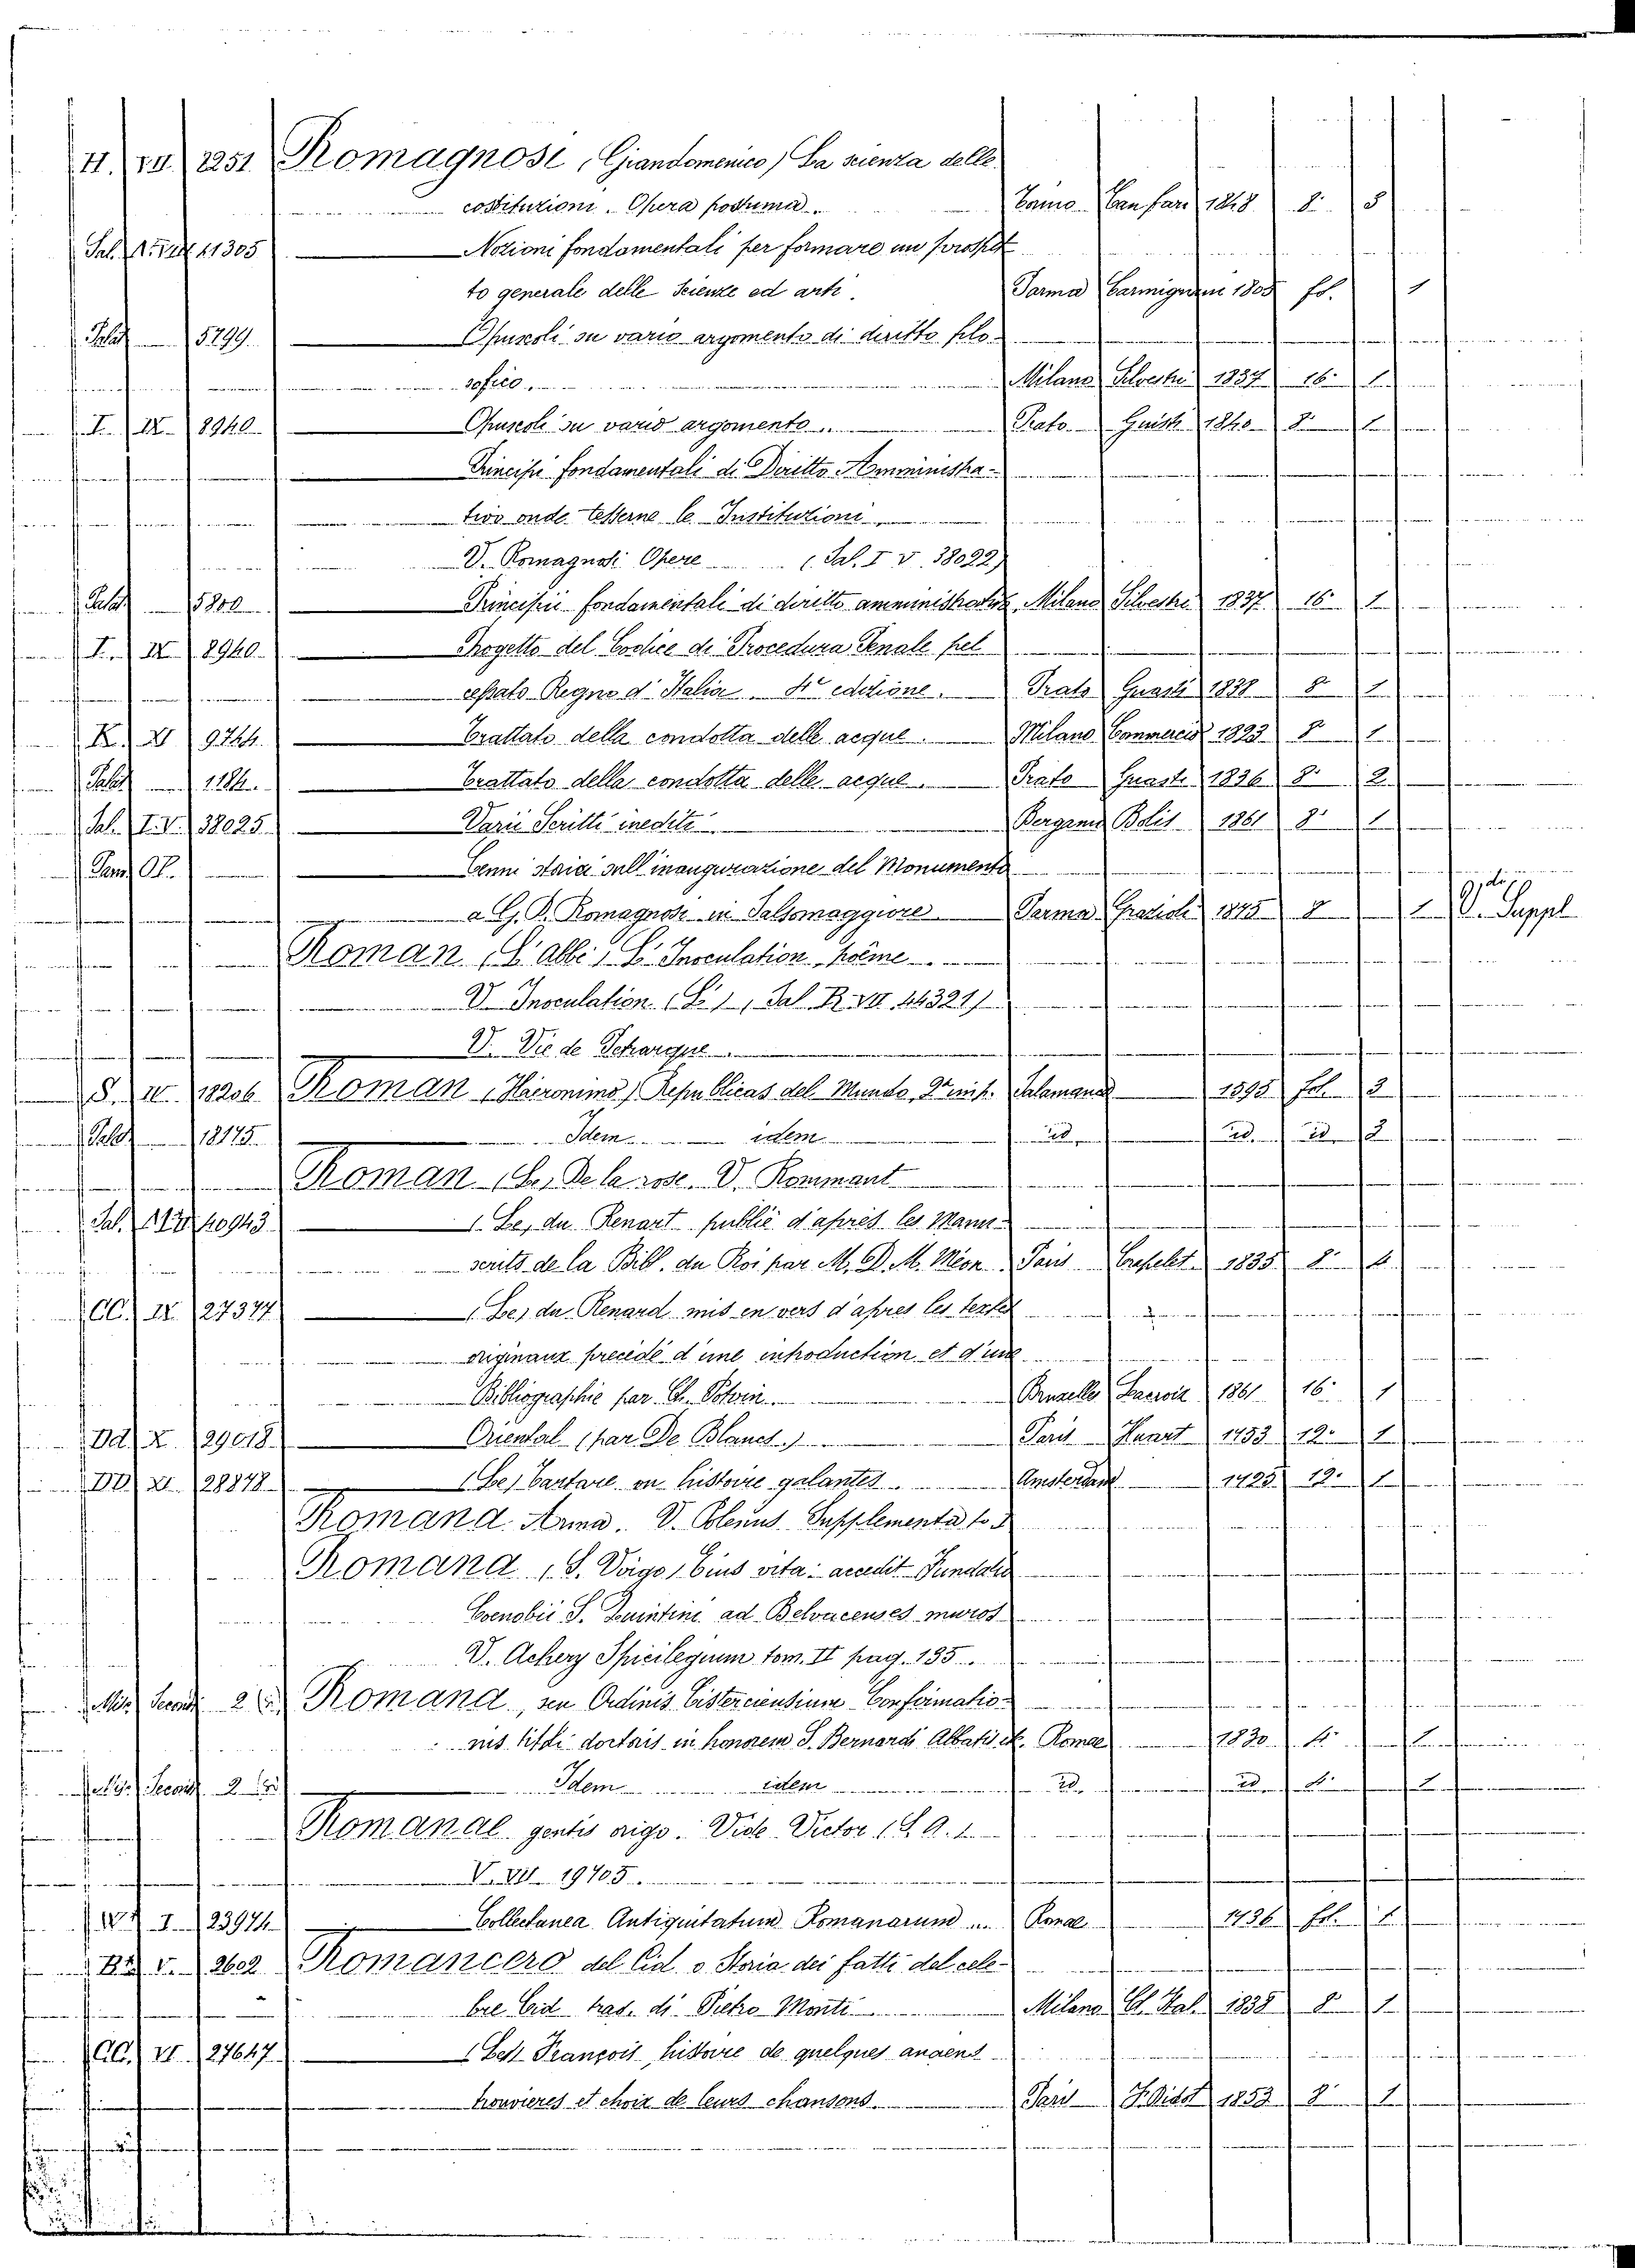 H. VII 1251 Romagnosi, (Giandomenico) La scienza delle
costituzioni. Opera postuma. 1848 8.
Sal. 11305 Nozioni fondamentali per formare un prospet
to generale delle Scienze ed arti. Parma Carmignani 1808 fo. 1
Palat 5799 Opuscoli su vario argomento di diritto filo-
sofico. Milano Silvestri 1837 16. 1
I. IX 8940 Opuscoli su vario argomento. Prato Guasti 1840 8. 1
Principi fondamentali di Diritto Amministra-
tivo onde tesserne le Instituzioni
V. Romagnosi Opere (Sal. I V. 38022)
Palat 5800 Principii fondamentali di diritto amministrativo Milano Silvestri 1837 16 1
I. IX 8940 Progetto del Codice di Procedura Penale pel
cessato Regno d'Italia. 4a edizione. Prato Guasti 1838 8 1
K. XI 9744 Trattato della condotta delle acque. Milano Commercio 1823 8 1
Palat 1184 Trattato della condotta delle acque. Prato Guasti 1836 8. 2
Sal. I.V. 38025 Varii Scritti inediti Bergamo Bolis 1861 8. 1
Cenni storici sull'inaugurazione del Monumento
a G. D. Romagnosi in Salsomaggiore Parma Grazioli 1875 8 1 V. Suppl
Roman, (L'abbé) L'Inoculation poëme
V. Inoculation (L') (Sal. R. VII. 44321)
V. Vie de
S. IV. 18206 Roman (Hieronimo) Republicas del Mundo Salamanca 1595 fol. 3
Palat 18175 Idem idem id. id. id. 3
Roman (Le) De la rose. V. Rommant
Sal. 40943 (Le) du Renart publié d'après les Manu-
scrits de la Bibl. du Roi par M. D. M. Méon Paris 1835 8. 4
CC. IX 27377 (Le) du Renard mis en vers d'apres les textes
originaux precedé d'une introduction et d'une
Bibliographie par Ch. Potvin. Bruxelles Lacroix 1861 16. 1
Dd X. 29018 Oriental (par De Blanes) Paris Huart 1753 12. 1
DD XI. 28878 (Le) Tartare ou histoire galantes. Amsterdam 12. 1
Romand Anna. V. Supplementa to.
Romana (S. Virgo) Eius vita: accedit Fundatio
Coenobii S. Quintini ad Belvacenses muros
V. Achery Spicilegium tom. II pag. 135.
Romana, seu Ordinis Cisterciensium Confirmatio-
nis in honorem S. Bernardi Abbatis Romae 1830 4. 1
Idem idem id. id. 4. 1
Romanae gentis origo. Vide Victor (S. A.)
V. VII. 19705.
I. 23974 Collectanea Antiquitatum Romanarum Romae 1736 fol. 1
V. 2602 Romancero del Cid o Storia dei fatti del cele-
bre Cid trad. di Pietro Monti Milano Cl. Ital. 1838 8 1
CC. VI. 27647 (Le) François, histoire de quelques anciens
trouvieres et choix de leurs chansons. Paris F. Didot 1853 8. 1